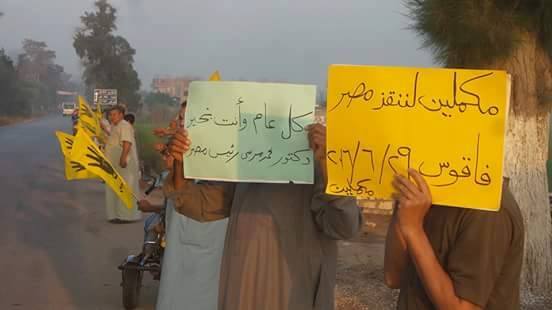 كل عام وأنت بخير
دكتور محمد مرسى رئيس مصر
مكملين لننقز مصر
فاقوس ٢٠١٦/٦/٢٩
مكملين